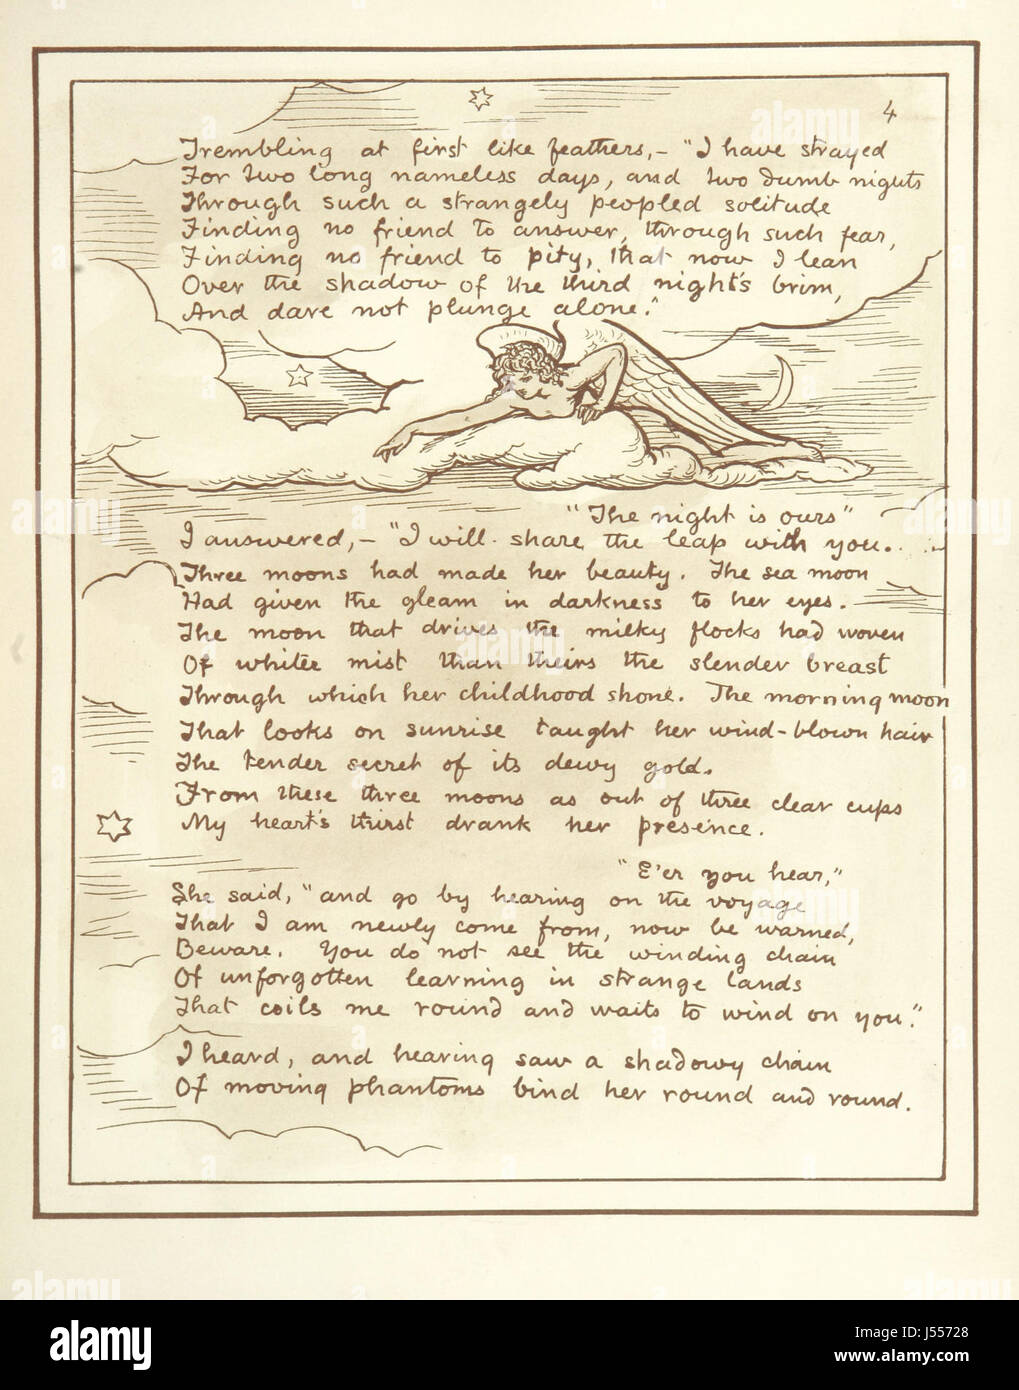 4
Trembling at first like feathers, – "I have strayed
For two long nameless days, and two dumb nights
Through such a strangely peopled solitude
Finding no friend to answer, through such fear,
Finding no friend to pity, that now I lean
Over the shadow of the third night's brim,
And dare not plunge alone."
"The night is ours"
I answered, – "I will share the leap with you.
Three moons had made her beauty. The sea moon
Had given the gleam in darkness to her eyes.
The moon that drives the milky flocks had woven
Of whiter mist than theirs the slender breast
Through which her childhood shone. The morning moon
That looks on sunrise taught her wind-blown hair
The tender secret of its dewy gold.
From these three moons as out of three clear cups
My heart's thirst drank her presence.
"E'er you hear,"
She said, "and go by hearing on the voyage
That I am newly come from, now be warned,
Beware. You do not see the winding chain
Of unforgotten learning in strange lands
That coils me round and waits to wind on you."
I heard, and hearing saw a shadowy chain
Of moving phantoms bind her round and round.
alamy
a
alamy stock photo
J55728
www.alamy.com